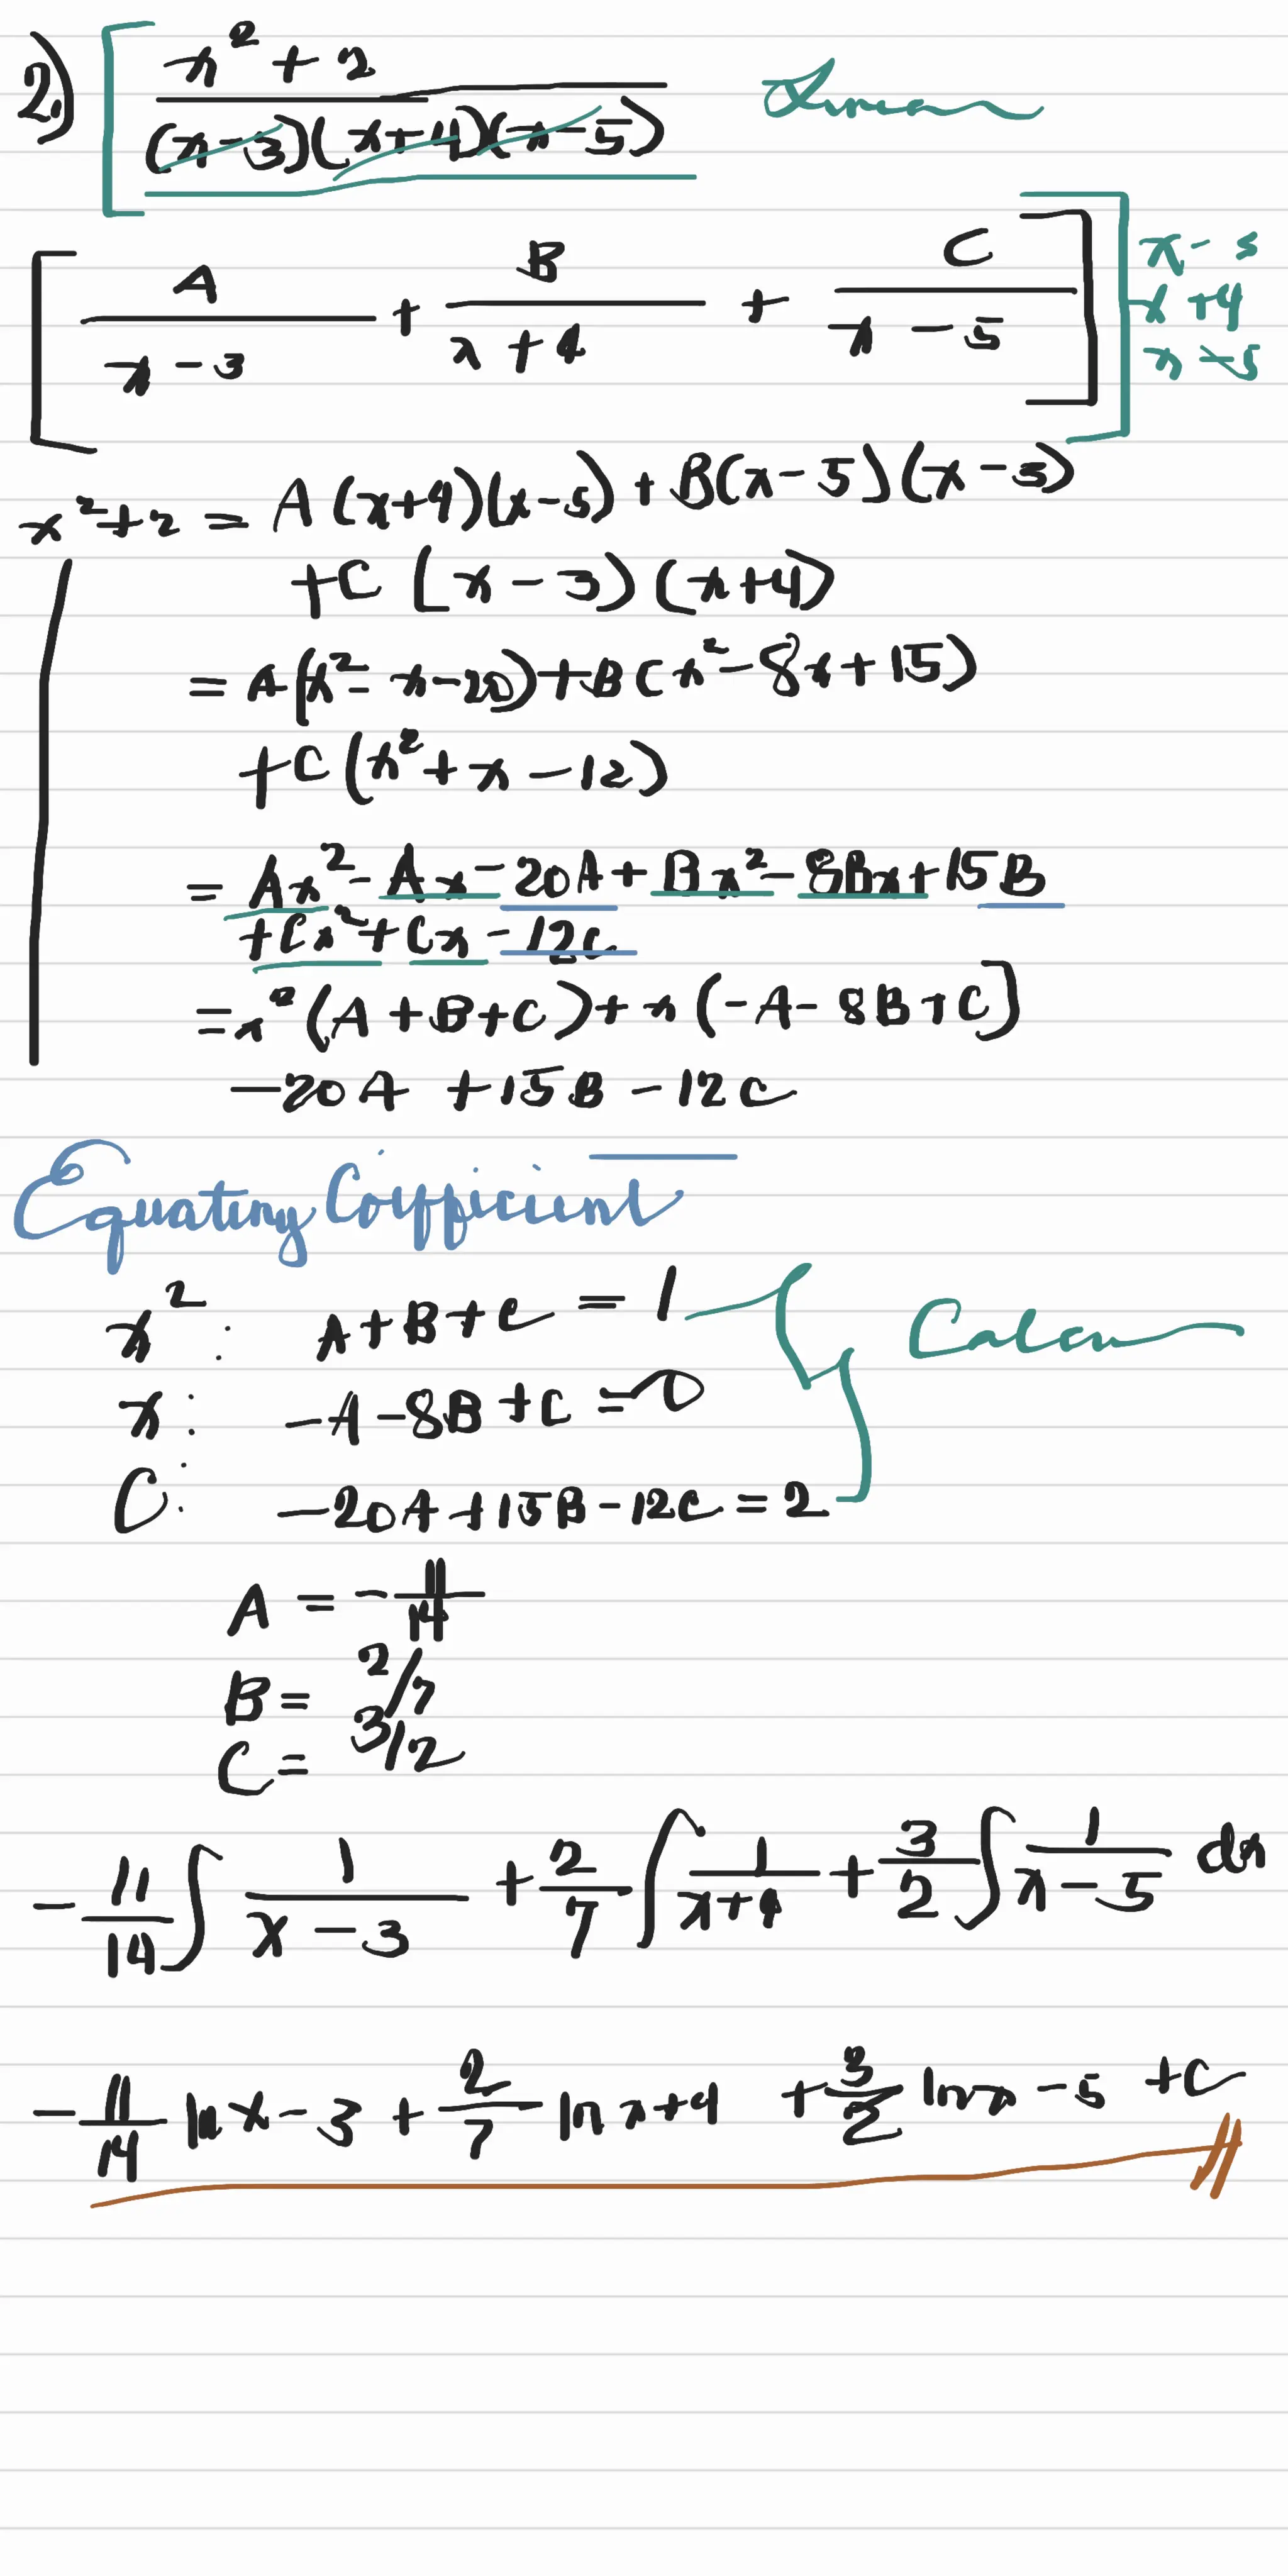 2) x² + 2 Linear
(x-3)(x+4)(x-5)
A/(x-3) + B/(x+4) + C/(x-5)
x - 3
x + 4
x - 5
x²+2 = A(x+4)(x-5) + B(x-5)(x-3)
+C(x-3)(x+4)
= A(x²-x-20)+B(x²-8x+15)
+C(x²+x-12)
= Ax²-Ax-20A+Bx²-8Bx+15B
+Cx²+Cx-12C
= x²(A+B+C)+x(-A-8B+C)
-20A+15B-12C
Equating Coefficient
x²: A+B+C = 1 Calcu
x: -A-8B+C = 0
C: -20A+15B-12C = 2
A = -11/14
B = 2/7
C = 3/2
-11/14 ∫ 1/(x-3) + 2/7 ∫ 1/(x+4) + 3/2 ∫ 1/(x-5) dx
-11/14 ln x-3 + 2/7 ln x+4 + 3/2 ln x-5 +C